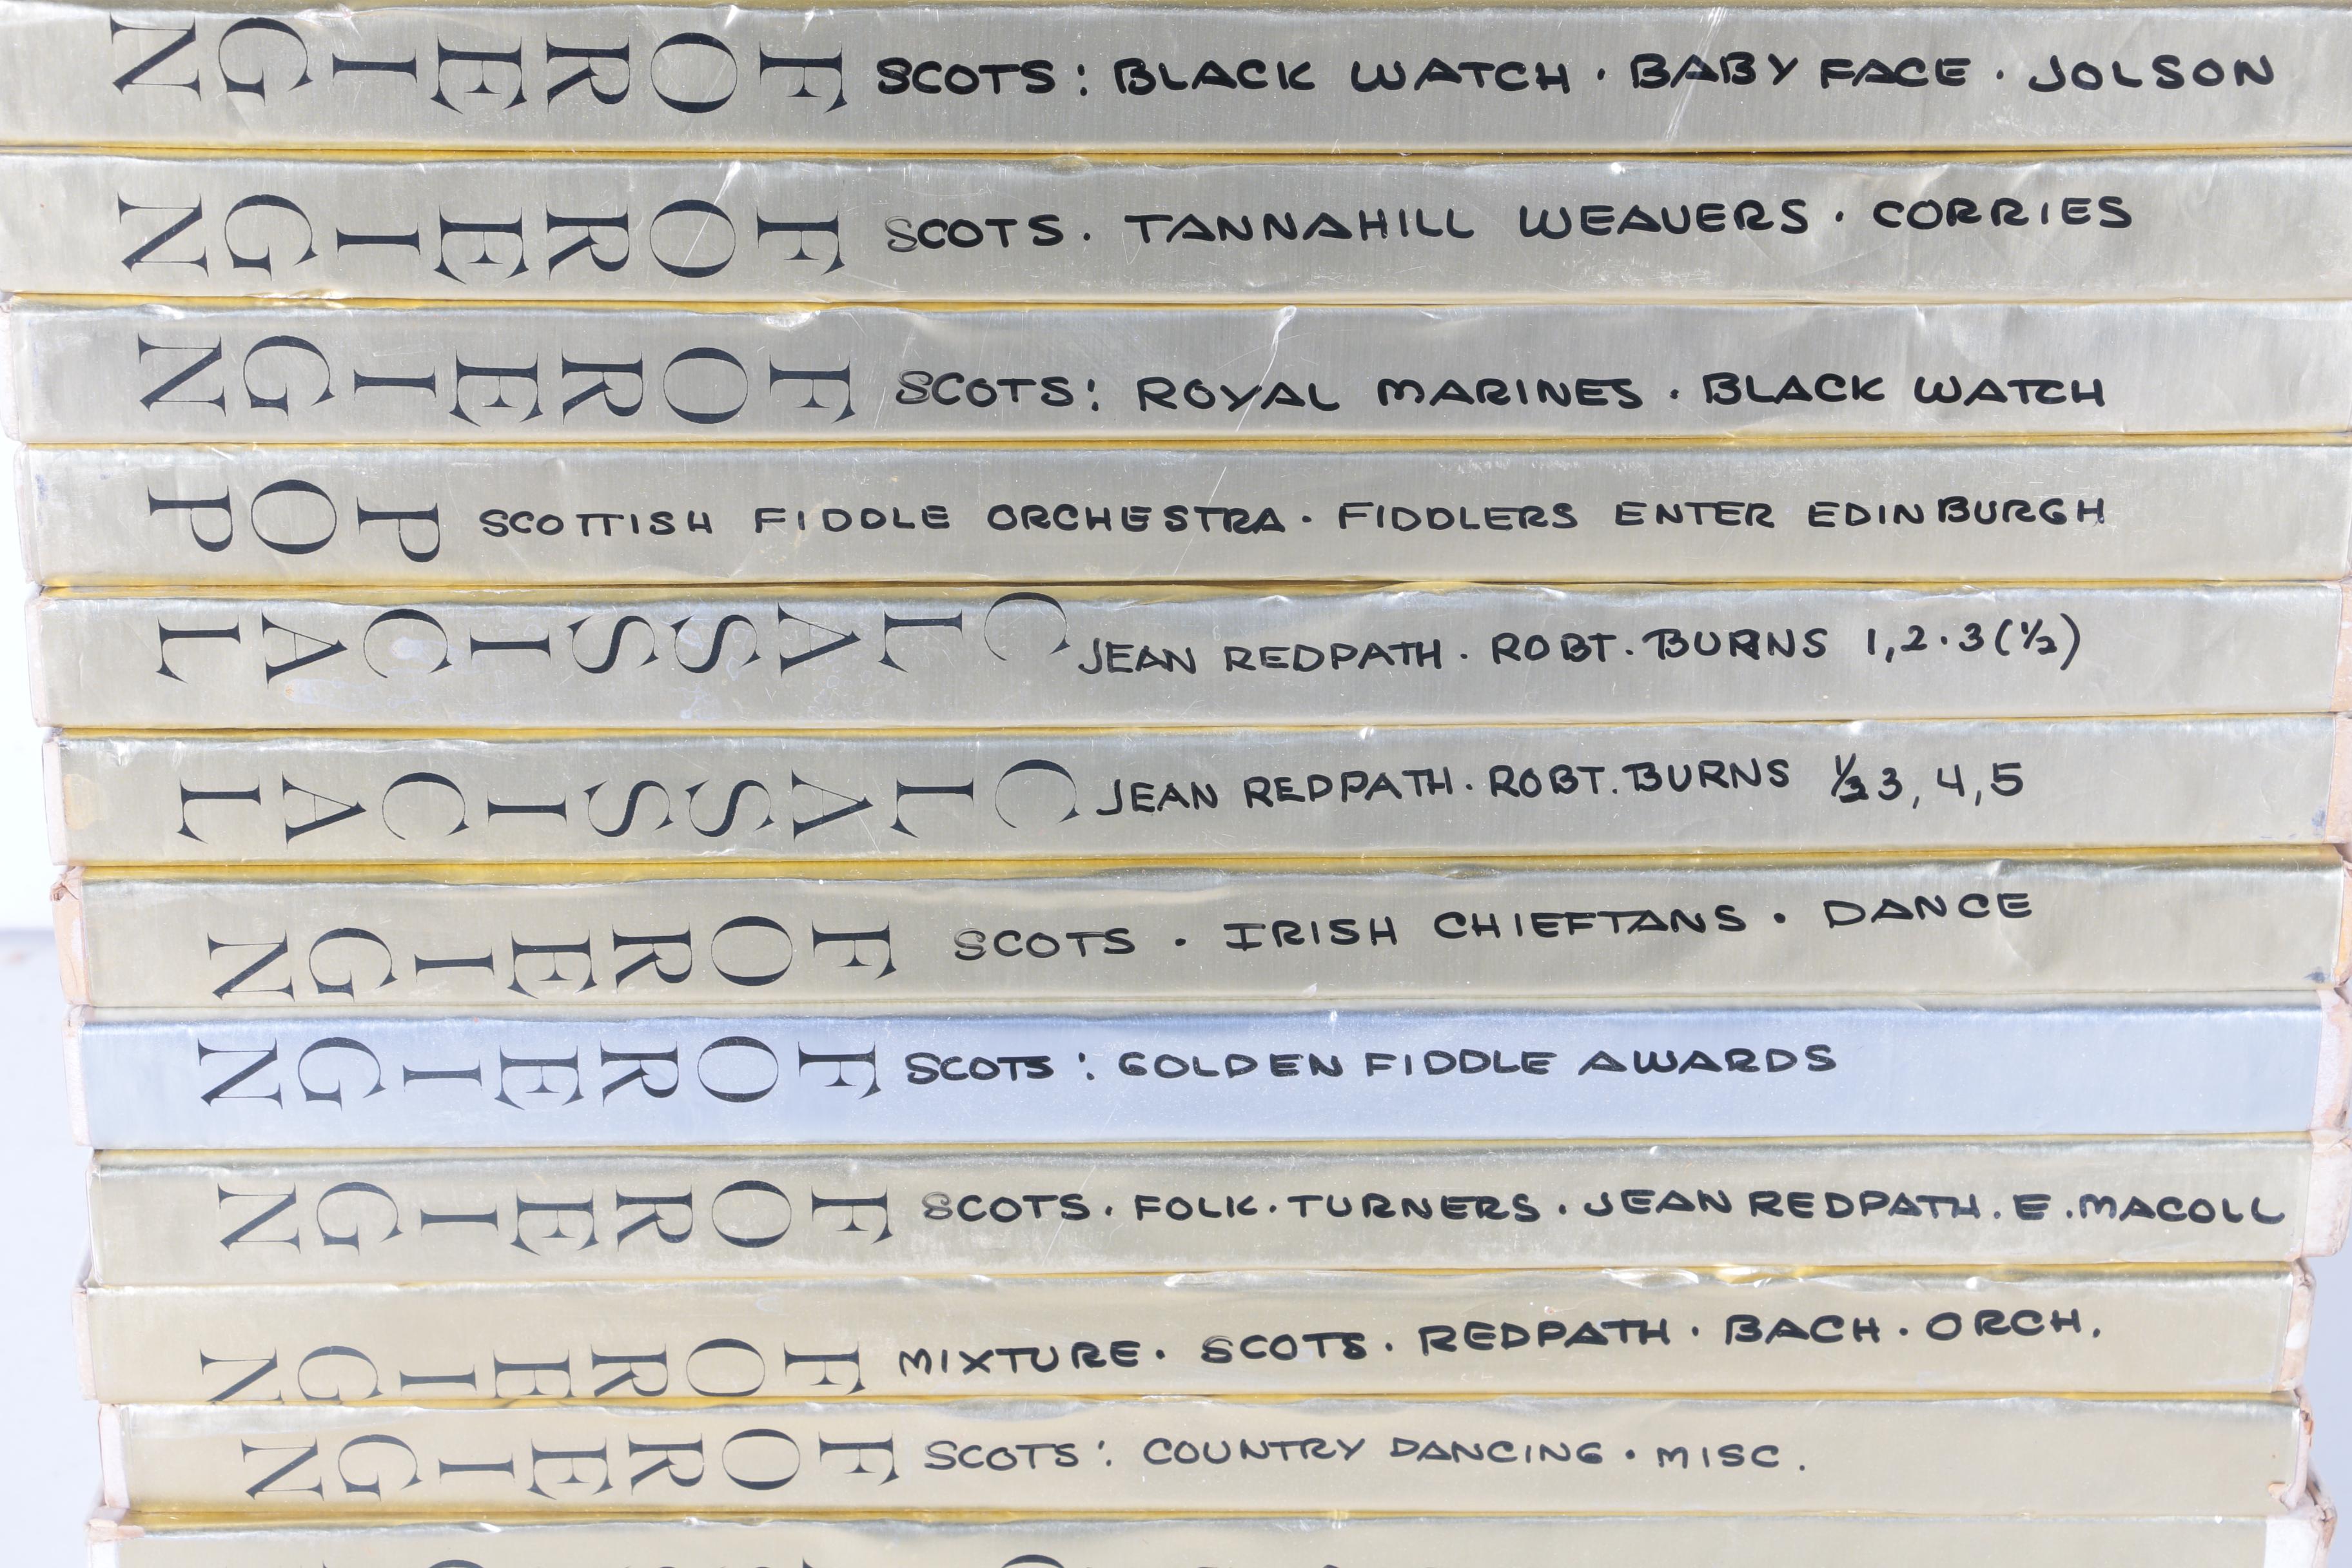 FOREIGN SCOTS: BLACK WATCH · BABY FACE · JOLSON
FOREIGN SCOTS. TANNAHILL WEAVERS · CORRIES
FOREIGN SCOTS: ROYAL MARINES · BLACK WATCH
POP SCOTTISH FIDDLE ORCHESTRA · FIDDLERS ENTER EDINBURGH
CLASSICAL JEAN REDPATH · ROBT. BURNS 1,2·3(½)
CLASSICAL JEAN REDPATH · ROBT. BURNS ½3, 4,5
FOREIGN SCOTS · IRISH CHIEFTANS · DANCE
FOREIGN SCOTS: GOLDEN FIDDLE AWARDS
FOREIGN SCOTS. FOLK · TURNERS · JEAN REDPATH. E. MACOLL
FOREIGN MIXTURE · SCOTS · REDPATH · BACH · ORCH.
FOREIGN SCOTS: COUNTRY DANCING · MISC.